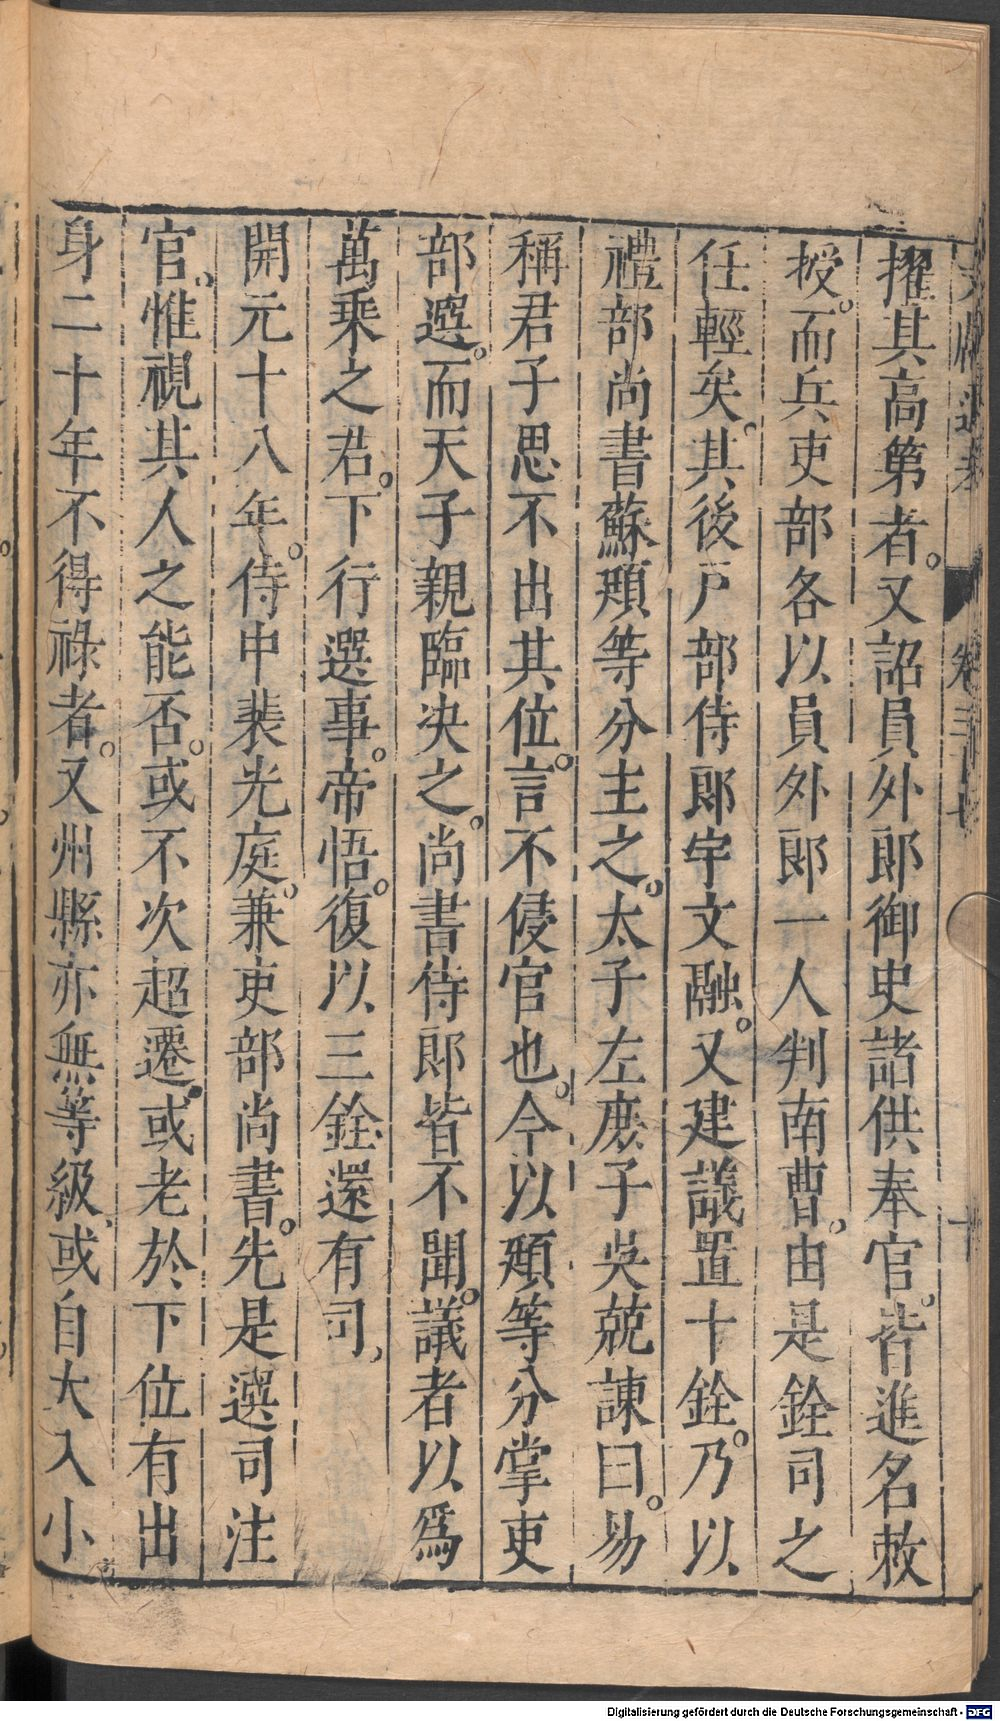 擢其高第者。又詔員外郎御史諸供奉官。皆進名敕
授。而兵吏部各以員外郎一人判南曹。由是銓司之
任輕矣。其後戶部侍郎宇文融。又建議置十銓。乃以
禮部尚書蘇頲等分主之。太子左庶子吳兢諫曰。易
稱君子思不出其位。言不侵官也。今以頲等分掌吏
部選。而天子親臨決之。尚書侍郎皆不聞。議者以爲
萬乘之君。下行選事。帝悟。復以三銓還有司、
開元十八年。侍中裴光庭。兼吏部尚書。先是選司注
官、惟視其人之能否。或不次超遷。或老於下位有出
身二十年不得祿者。又州縣亦無等級、或自大入小
卷三十七
十
Digitalisierung gefördert durch die Deutsche Forschungsgemeinschaft - DFG